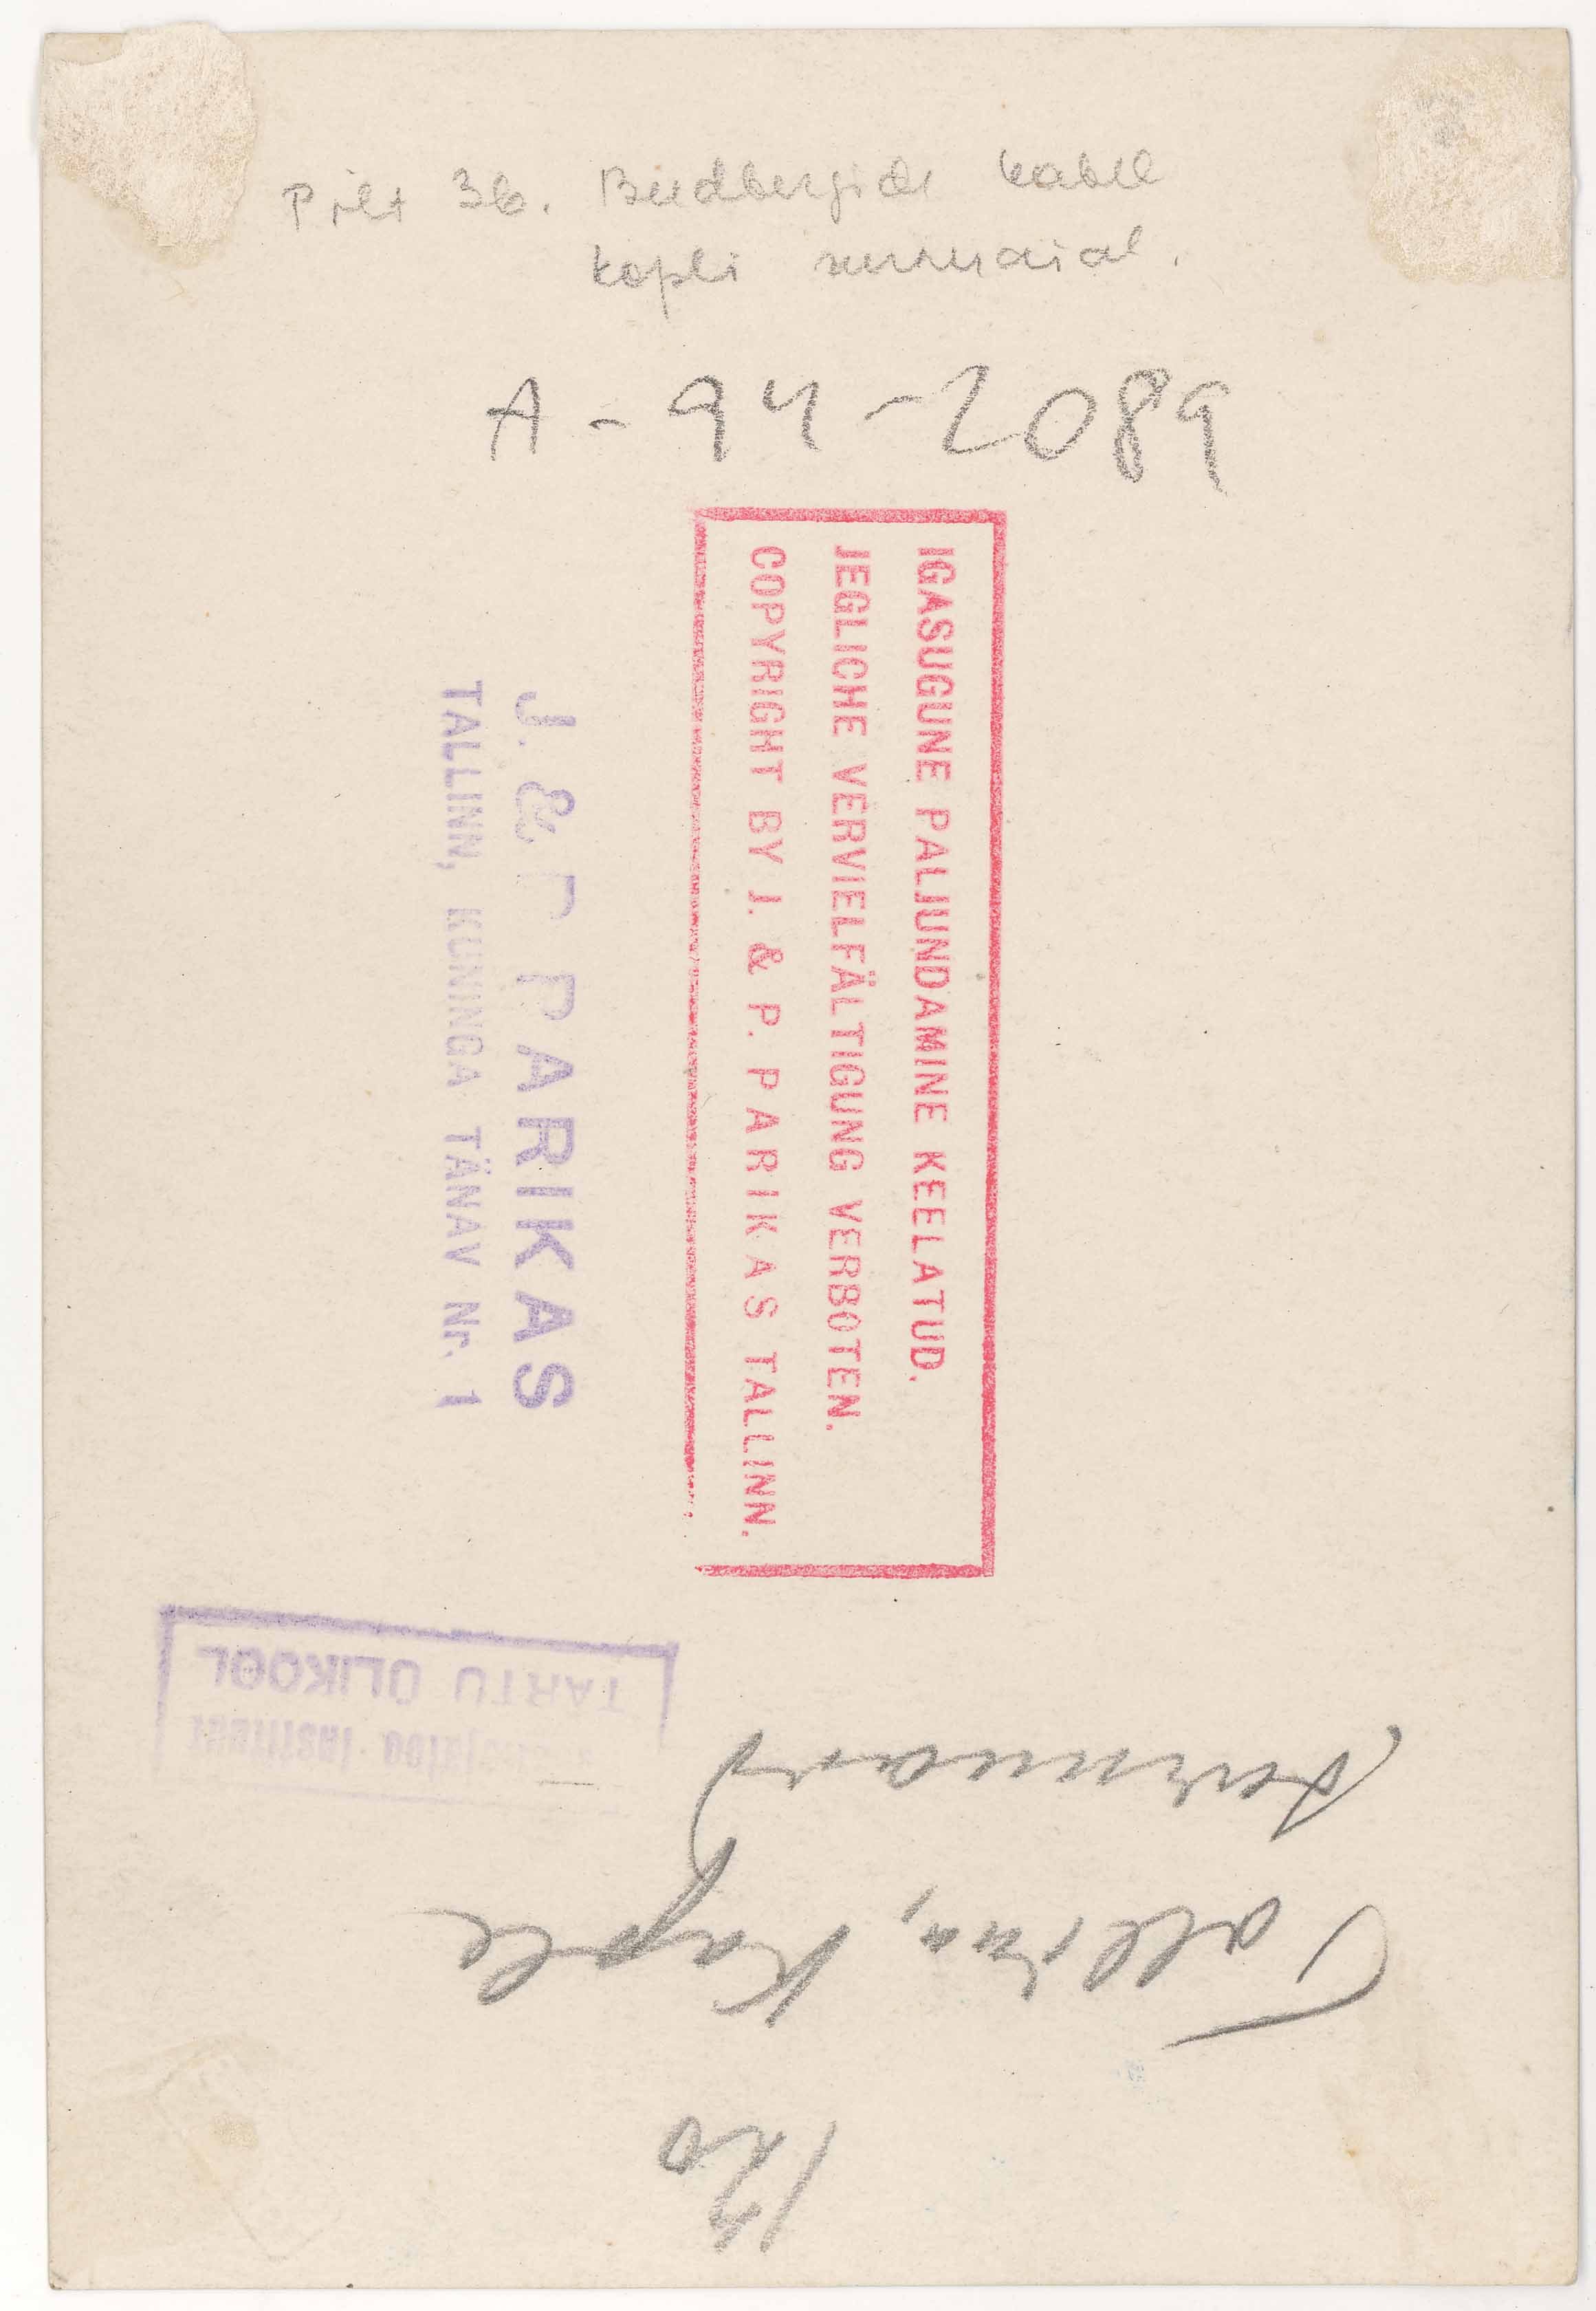 Pilt 36. Budbergide kabel
Kopli surnuaial.
A-94-2089
IGASUGUNE PALJUNDAMINE KEELATUD.
JEGLICHE VERVIELFÄLTIGUNG VERBOTEN.
COPYRIGHT BY J. & P. PARIKAS TALLINN.
J. & P. PARIKAS
TALLINN, KUNINGA TÄNAV Nr. 1
120
Tallinn, Kople
surnuaed
INSTITUUT
TARTU ÜLIKOOL